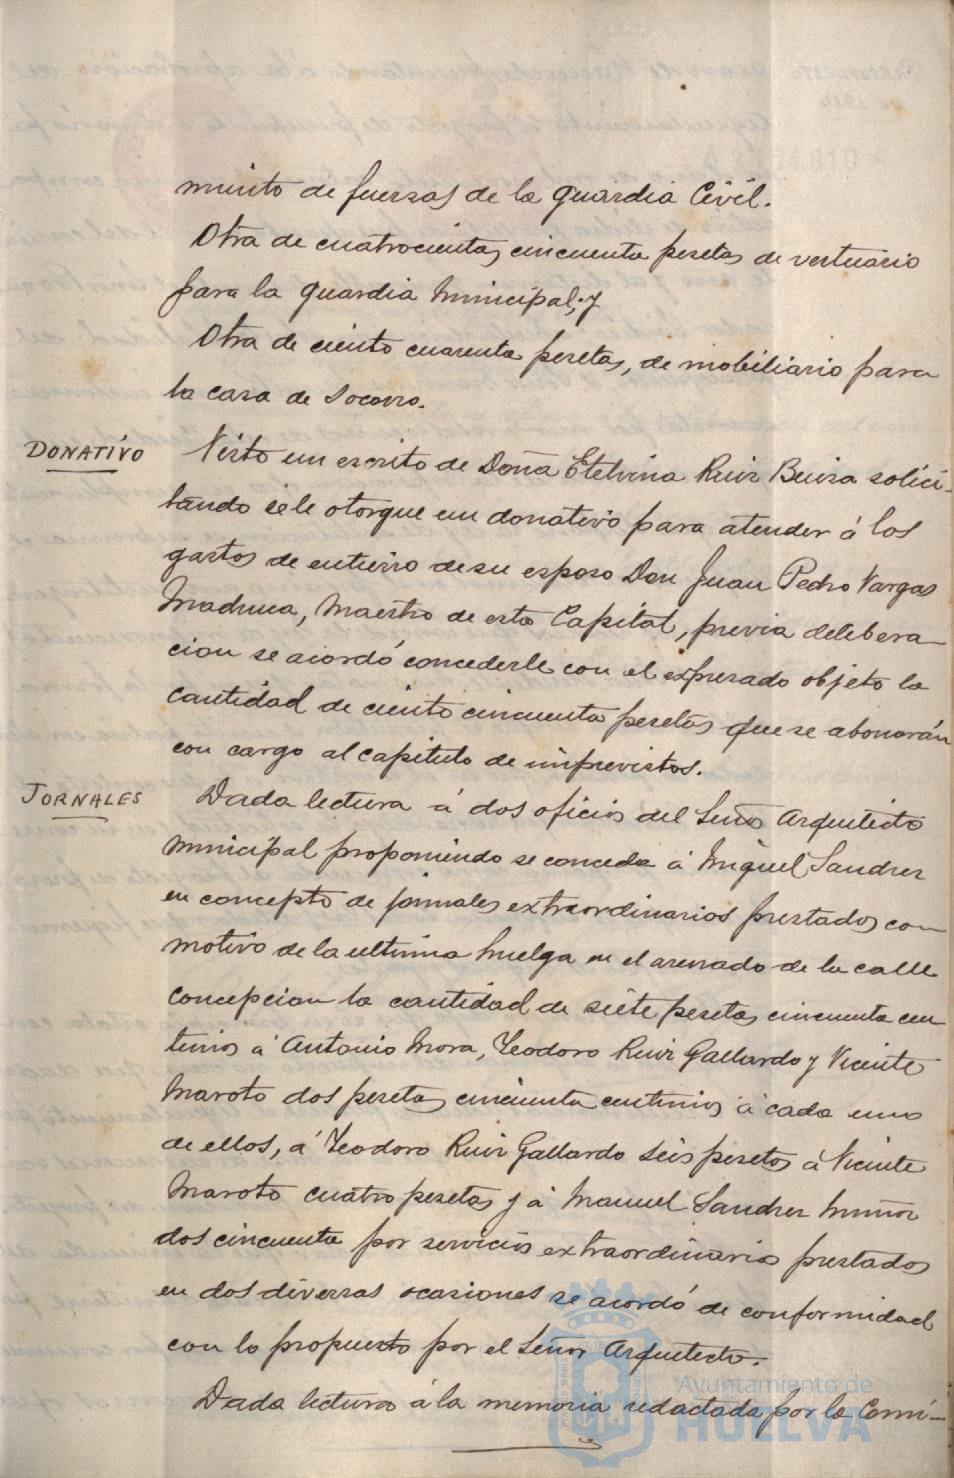 miento de fuerzas de la guardia Civil.
Otra de cuatrocientas cincuenta pesetas de vestuario
para la guardia Municipal; y
Otra de ciento cuarenta pesetas, de mobiliario para
la casa de Socorro.
DONATIVO
Visto un escrito de Doña Etelvina Ruiz solici-
tando se le otorgue un donativo para atender á los
gastos de entierro de su esposo Don Juan Pedro Vargas
Maestro de esta Capital, previa delibera-
cion se acordó concederle con el expresado objeto la
cantidad de ciento cincuenta pesetas que se abonarán
con cargo al capitulo de imprevistos.
JORNALES
Dada lectura á dos oficios del Señor Arquitecto
Municipal proponiendo se conceda á Miguel Sanchez
en concepto de jornales extraordinarios prestados con
motivo de la ultima huelga en el arenado de la calle
Concepcion la cantidad de siete pesetas cincuenta cen
timos á Antonio Mora, Teodoro Ruiz Gallardo y Vicente
Maroto dos pesetas cincuenta centimos á cada uno
de ellos, á Teodoro Ruiz Gallardo seis pesetas á Vicente
Maroto cuatro pesetas y á Manuel Sanchez Muñoz
dos cincuenta por servicios extraordinarios prestados
en dos diversas ocasiones se acordó de conformidad
con lo propuesto por el Señor Arquitecto.
Dada lectura á la memoria redactada por la Comi-
Ayuntamiento de
HUELVA